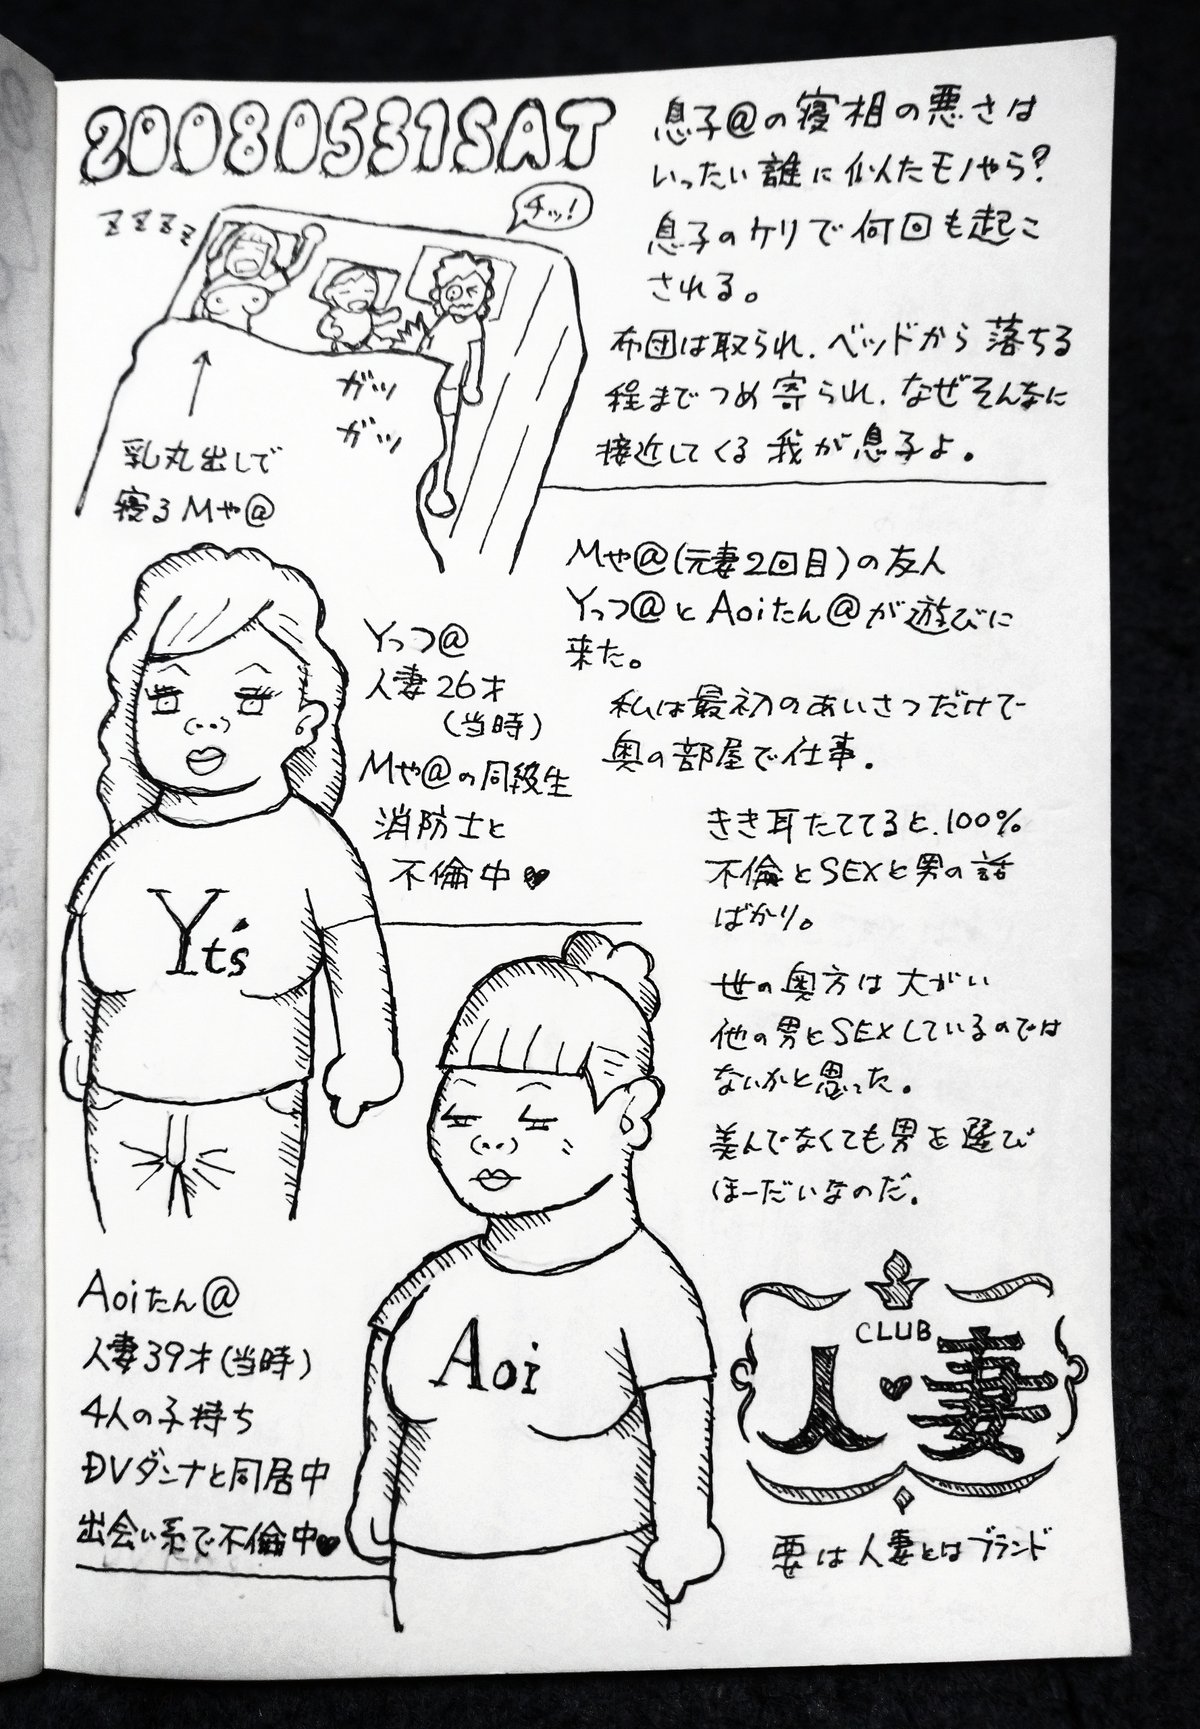 20080531SAT
息子@の寝相の悪さは
いったい誰に似たモノやら?
息子のケリで何回も起こ
される。
布団は取られ、ベッドから落ちる
程までつめ寄られ、なぜそんなに
接近してくる我が息子よ。
zzzz
チッ!
ガッ
ガッ
乳丸出しで
寝るMや@
Mや@(元妻2回目)の友人
Yっつ@とAoiたん@が遊びに
来た。
私は最初のあいさつだけで
奥の部屋で仕事。
きき耳たててると、100%
不倫とSEXと男の話
ばかり。
世の奥方は大がい
他の男とSEXしているのでは
ないかと思った。
美んでなくても男を選び
ほーだいなのだ。
Yっつ@
人妻26才
(当時)
Mや@の同級生
消防士と
不倫中♥
Yt's
Aoi
Aoiたん@
人妻39才(当時)
4人の子持ち
DVダンナと同居中
出会い系で不倫中♥
CLUB
人♥妻
要は人妻とはブランド